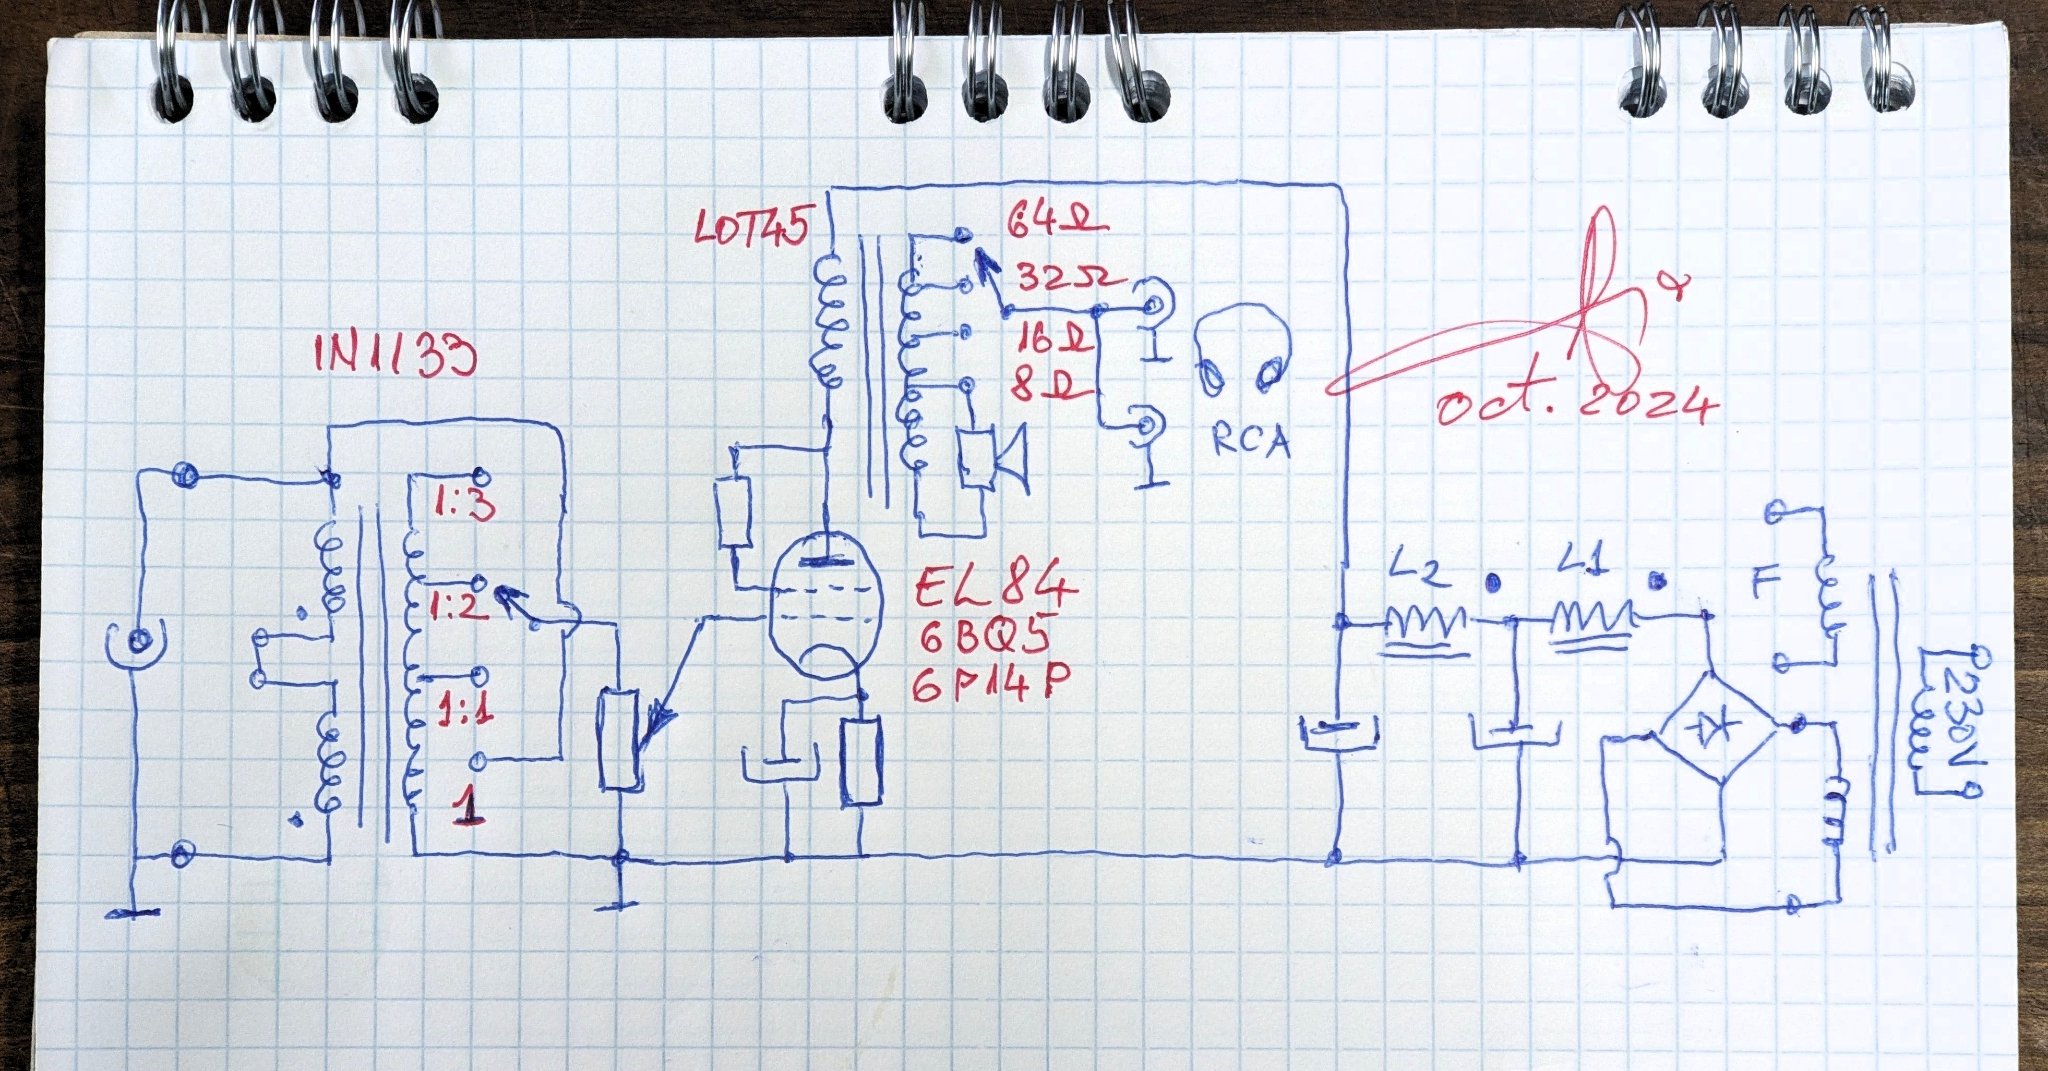 LOT45
64Ω
32Ω
16Ω
8Ω
RCA
oct. 2024
1N1133
1:3
1:2
1:1
1
EL84
6BQ5
6P14P
L2
L1
F
230V